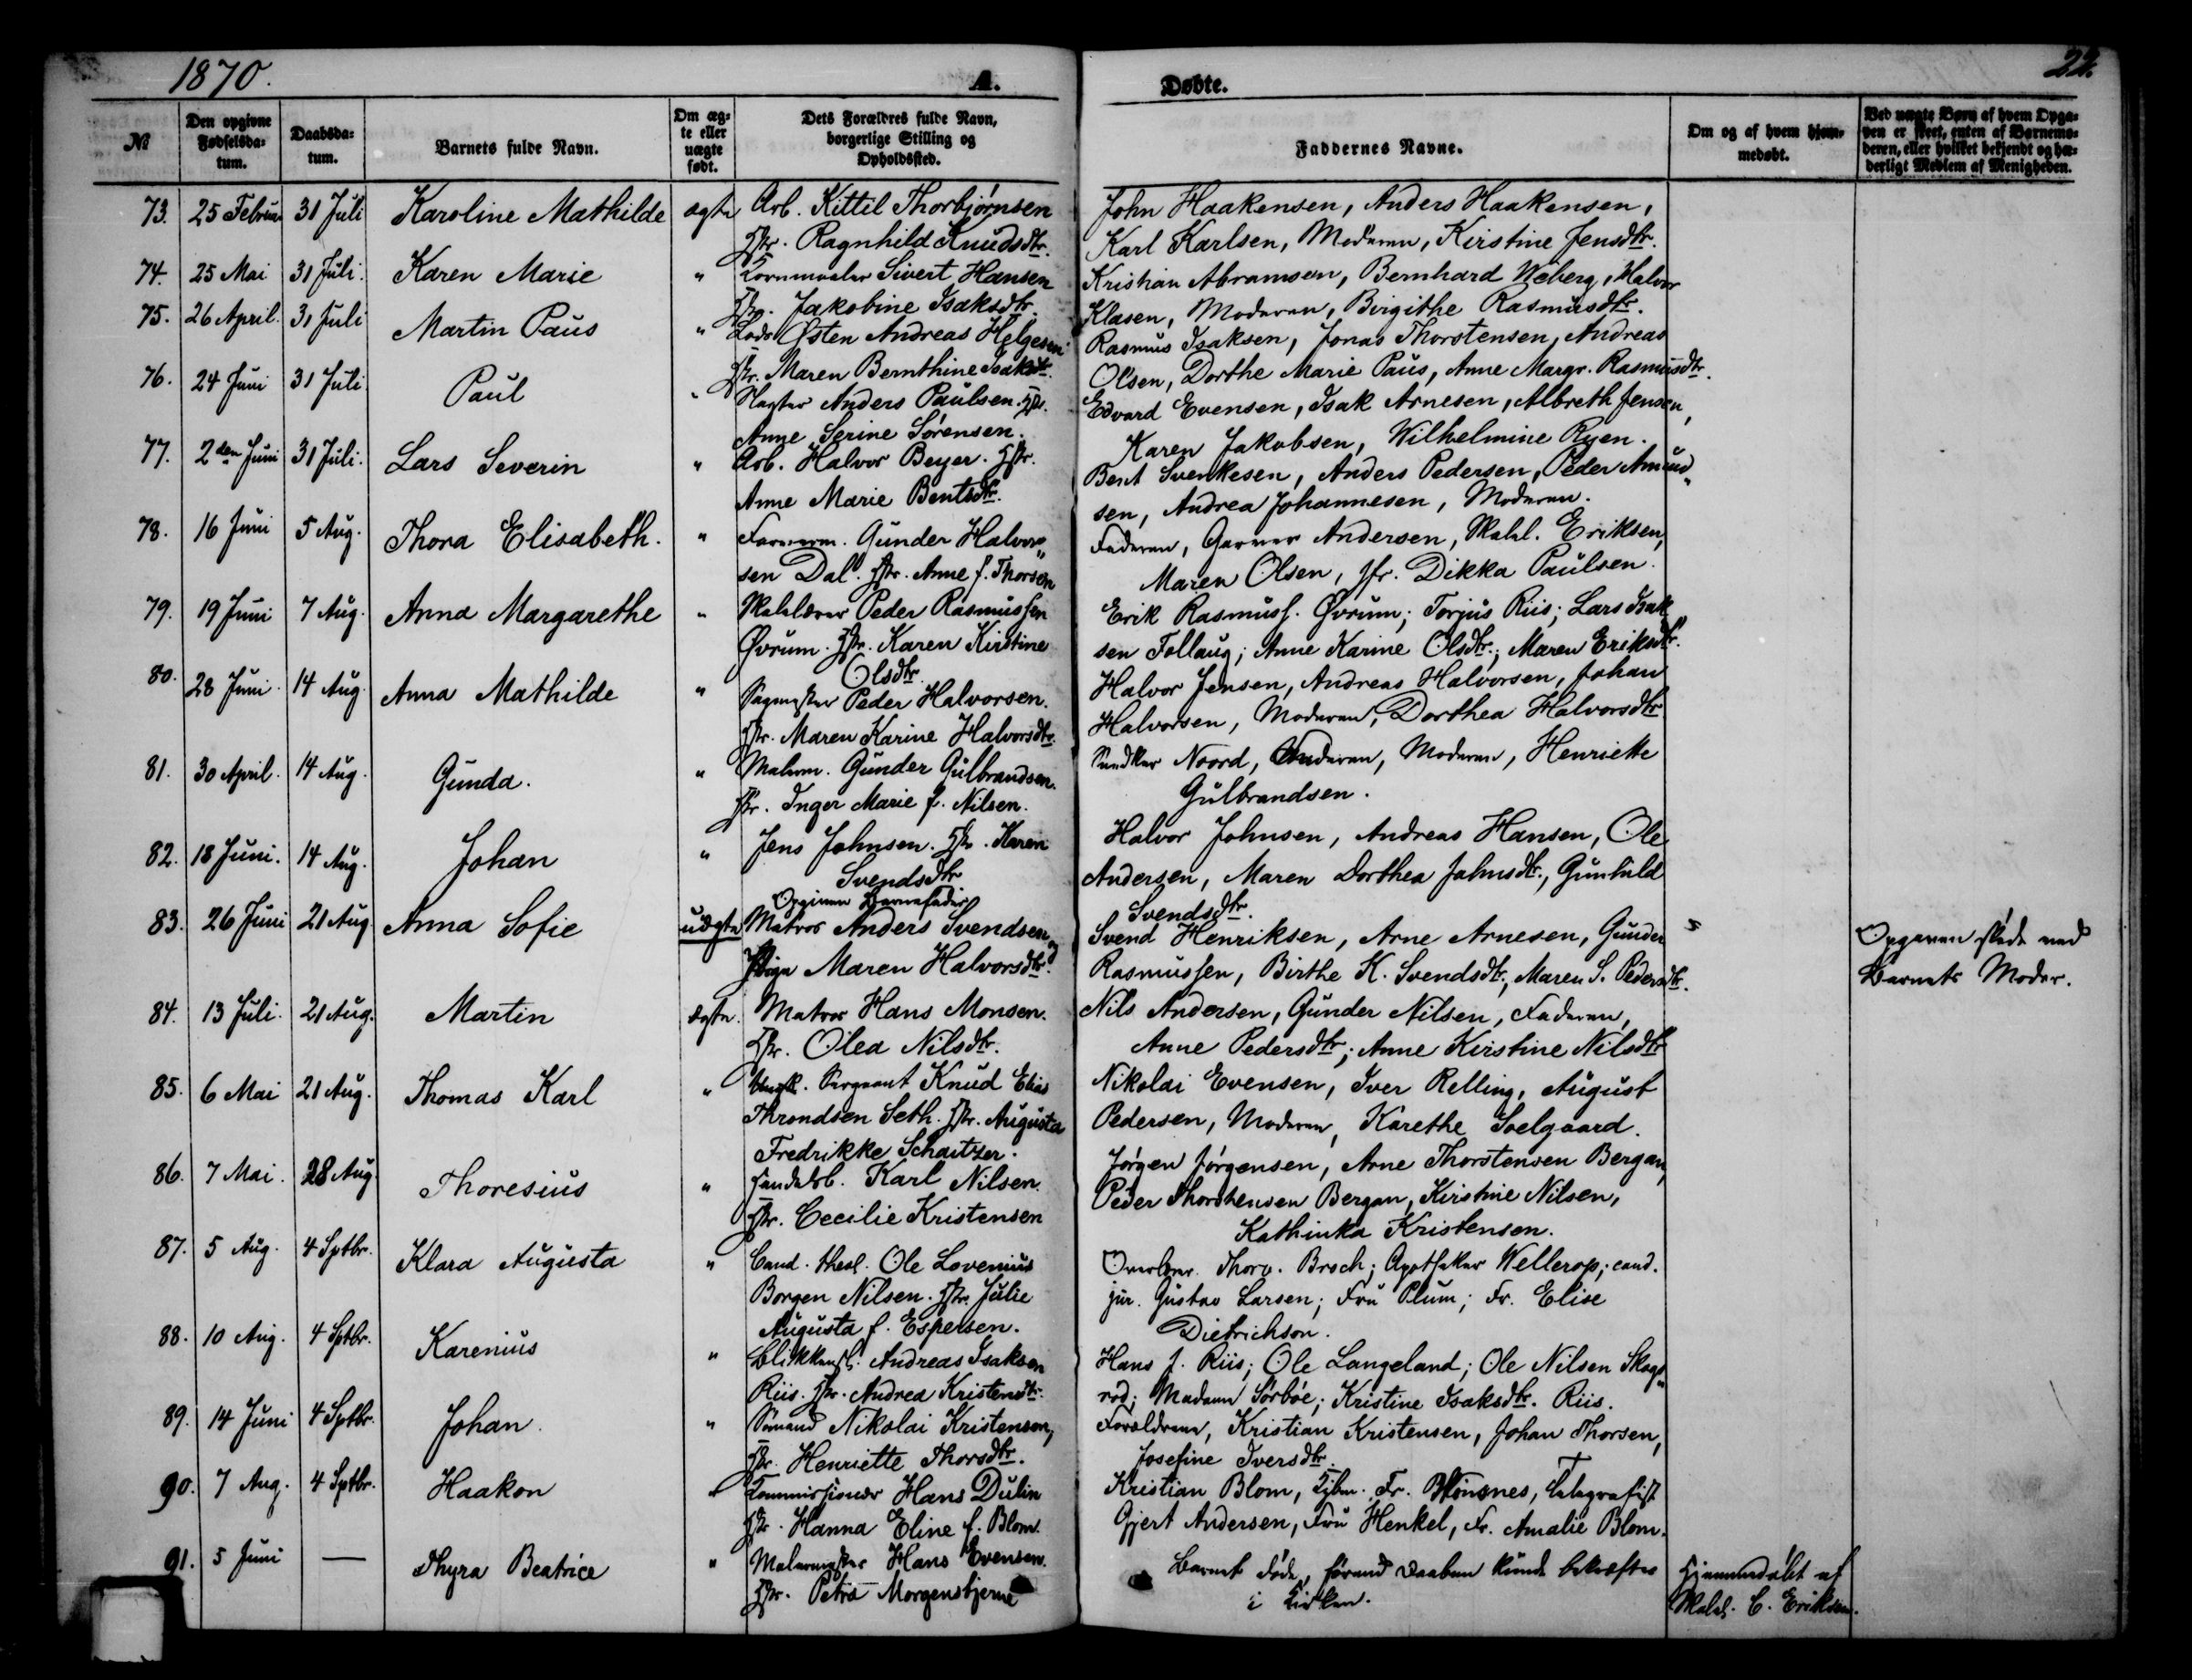 1870.
A.
Døbte.
22.
№
Den opgivne Fødselsda- tum.
Daabsda- tum.
Barnets fulde Navn.
Om æg- te eller uægte født.
Dets Forældres fulde Navn, borgerlige Stilling og Opholdssted.
Faddernes Navne.
Om og af hvem hjem- medøbt.
Ved uægte Børn af hvem Opga- ven er skeet, enten af Barnemo- deren, eller hvilket bekjendt og hæ- derligt Medlem af Menigheden.
73. 25 Februar 31 Juli Karoline Mathilde ægte Arb. Kittil Thorbjørnsen
Hstr. Ragnhild Knudsdtr.
John Haakensen, Anders Haakensen,
Karl Karlsen, Moderen, Kirstine Jensdtr.
74. 25 Mai 31 Juli. Karen Marie " Kornmaaler Sivert Hansen
Hstr. Jakobine Isaksdtr.
Kristian Abramsen, Bernhard Weberg, Halvor
Klasen, Moderen, Birgithe Rasmusdtr.
75. 26 April. 31 Juli Martin Paus " Lods Østen Andreas Helgesen
Hstr. Maren Bernthine Isaksdtr.
Rasmus Isaksen, Jonas Thorstensen, Andreas
Olsen, Dorthe Marie Paus, Anne Margr. Rasmusdtr.
76. 24 Juni 31 Juli Paul " Slagter Anders Paulsen. Hstr.
Anne Serine Sørensen.
Edvard Evensen, Isak Arnesen, Albreth Jensen,
Karen Jakobsen, Wilhelmine Ryen.
77. 2den Juni 31 Juli. Lars Severin " Arb. Halvor Beyer. Hstr.
Anne Marie Bentsdtr.
Bent Svenkesen, Anders Pedersen, Peder Amund-
sen, Andrea Johannesen, Moderen.
78. 16 Juni 5 Aug. Thora Elisabeth. " Farverm. Gunder Halvor-
sen Dal. Hstr. Anne f. Thorsen
Faderen, Garver Andersen, Skolel. Eriksen,
Maren Olsen, Jfr. Dikka Paulsen.
79. 19 Juni 7 Aug. Anna Margarethe " Skolelærer Peder Rasmussen
Øvrum. Hstr. Karen Kirstine
Olsdtr.
Erik Rasmuss. Øvrum; Torjus Riis; Lars Isak-
sen Follaug; Anne Karine Olsdtr.; Maren Eriksdtr.
80. 28 Juni. 14 Aug. Anna Mathilde " Sagmester Peder Halvorsen.
Hstr. Maren Karine Halvorsdtr.
Halvor Jensen, Andreas Halvorsen, Johan
Halvorsen, Moderen, Dorthea Halvorsdtr.
81. 30 April. 14 Aug. Gunda. " Gunder Gulbrandsen.
Hstr. Inger Marie f. Nilsen.
Snedker Noord, Faderen, Moderen, Henriette
Gulbrandsen.
82. 18 Juni. 14 Aug. Johan " Jens Johnsen. Hstr. Karen
Svendsdtr.
Halvor Johnsen, Andreas Hansen, Ole
Andersen, Maren Dorthea Johnsdtr., Gunhild
Svendsdtr.
83. 26 Juni 21 Aug Anna Sofie uægte Opgiven Barnefader
Matros Anders Svendsen og
Pige Maren Halvorsdtr.
Svend Henriksen, Arne Arnesen, Gunder
Rasmussen, Birthe K. Svendsdtr., Maren S. Pedersdtr.
Opgaven skede ved
Barnets Moder.
84. 13 Juli. 21 Aug. Martin ægte. Matros Hans Monsen.
Hstr. Olea Nilsdtr.
Nils Andersen, Gunder Nilsen, Faderen,
Anne Pedersdtr.; Anne Kirstine Nilsdtr
85. 6 Mai 21 Aug. Thomas Karl " Sergeant Knud Elias
Throndsen Seth. Hstr. Augusta
Fredrikke Schautzer.
Nikolai Evensen, Iver Relling, August
Pedersen, Moderen, Karethe Soelgaard.
86. 7 Mai. 28 Aug Thoresius " Karl Nilsen.
Hstr. Cecilie Kristensen
Jørgen Jørgensen, Arne Thorstensen Bergan,
Peder Thorstensen Bergan, Kirstine Nilsen,
Kathinka Kristensen.
87. 5 Aug. 4 Sptbr. Klara Augusta " Cand. theol. Ole Lovenius
Borgen Nilsen. Hstr. Julie
Augusta f. Espersen.
Overlærer Thorv. Broch; Apotheker Wellerop; cand.
jur. Gustav Larsen; Fru Plum; Fr. Elise
Dietrichson.
88. 10 Aug. 4 Sptbr. Karenius " Blikkensl. Andreas Isaksen
Riis. Hstr. Andrea Kristensdtr.
Hans J. Riis; Ole Langeland; Ole Nilsen Skogs-
rød; Madam Sørbøe; Kristine Isaksdtr. Riis.
89. 14 Juni 4 Sptbr. Johan. " Sømand Nikolai Kristensen,
Hstr. Henriette Thorsdtr.
Forældrene, Kristian Kristensen, Johan Thorsen,
Josefine Iversdtr.
90. 7 Aug. 4 Sptbr. Haakon " Kommissionær Hans Dulin
Hstr. Hanna Eline f. Blom.
Kristian Blom, Kjbm. Fr. telegrafist
Gjert Andersen, Fru Henkel, Fr. Amalie Blom.
91. 5 Juni — Thyra Beatrice " Malermester Hans Evensen.
Hstr. Petra Morgenstjerne
Barnet døde, førend Daaben kunde bekræftes
i Kirken.
Hjemmedøbt af
Skolel. C. Eriksen.